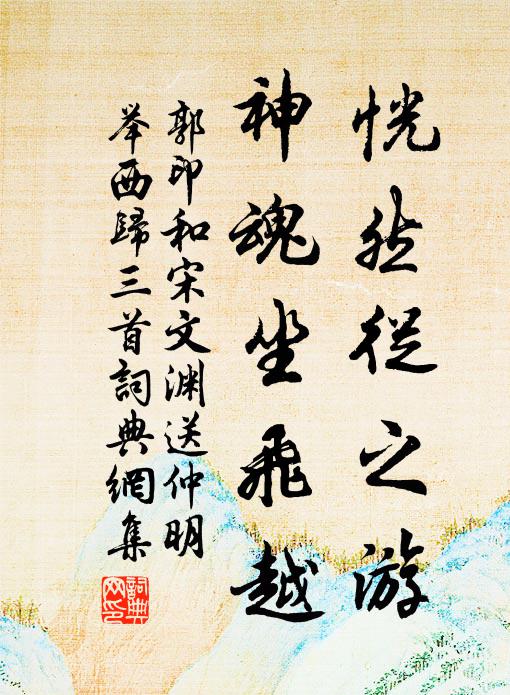 恍然從之游
神魂坐飛越
郭印和宋文渊送仲明
举西歸三首詞典網集
詞典网印